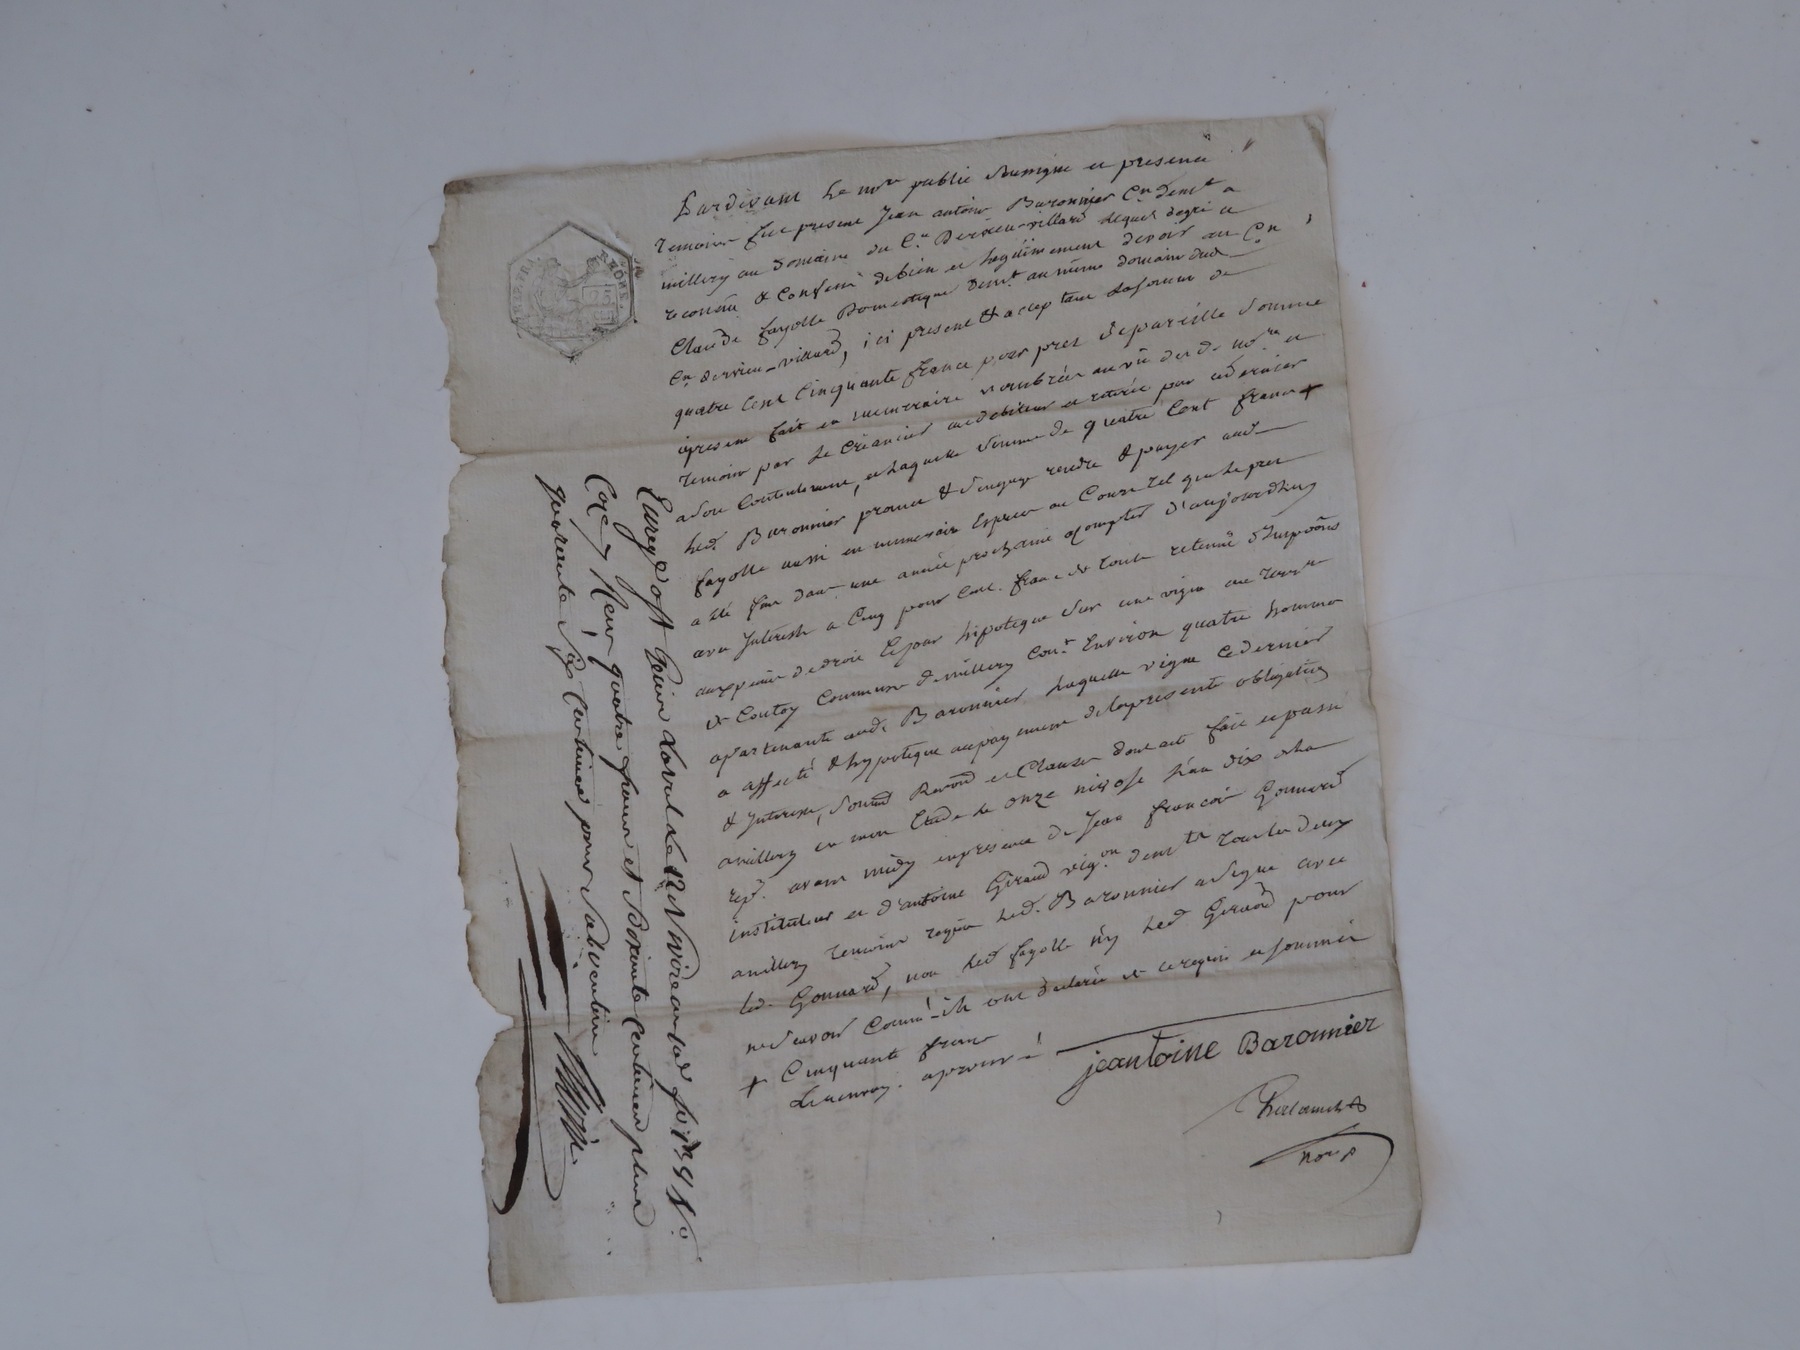 Pardevant le no.re public soussigné et présence
temoins fut present Jean antoine Baronnier C.n dem.t a
millery au domaine du C.n Dervieu-villard lequel degré a
reconnu & confessé debien et legitimement devoir au C.n
Claude fayolle Domestique dem.t au même domaine dud.
C.n dervieu-villard, ici present & acceptant la somme de
quatre cent cinquante francs pour pret de pareille somme
apresent fait en numeraire nombrée au vû du d. no.re et
temoins par le Créancier au debiteur et retirée par ce dernier
a son contentement, et laquelle somme de quatre cent francs +
led. Baronnier promet & s'engage rendre & payer aud.
fayolle aussi en numeraire Especes au Cours tel que le pret
a été fait dans une année prochaine a compter d'aujourdhuy
avec Interets a Cinq pour Cent. franc de toute retenue d'Impoôns
aux peines de droit Et pour hipoteque sur une vigne au
de Coutoy Commune de millery Con.t Environ quatre hommes
apartenante aud. Baronnier laquelle vigne ce dernier
a affecté & hypoteque au payement de la presente obligation
& Interets, soumô Renonô et Clauses dont acte fait et passé
a millery en mon Etude le onze nivose l'an dix de la
rep. avant midy en presence de Jean françois Gonnard
instituteur et d'antoine Giraud vig.on dem.ts tous les deux
a millery temoins requis led. Baronnier a signé avec
led. Gonnard, non led. fayolle ny led. Giraud pour
ne savoir comme ils ont déclaré de ce requis et sommés
+ Cinquante francs
le renvoy. approuvé
jeantoine Baronnier
not. p
Enregé a St Genis Laval le 12 Nivôse an 10 fo
Cses 7 Reçu quatre francs et Soixante Centimes plus
quarante Six Centimes pour Subvention
REP. FRA.
RHÔNE.